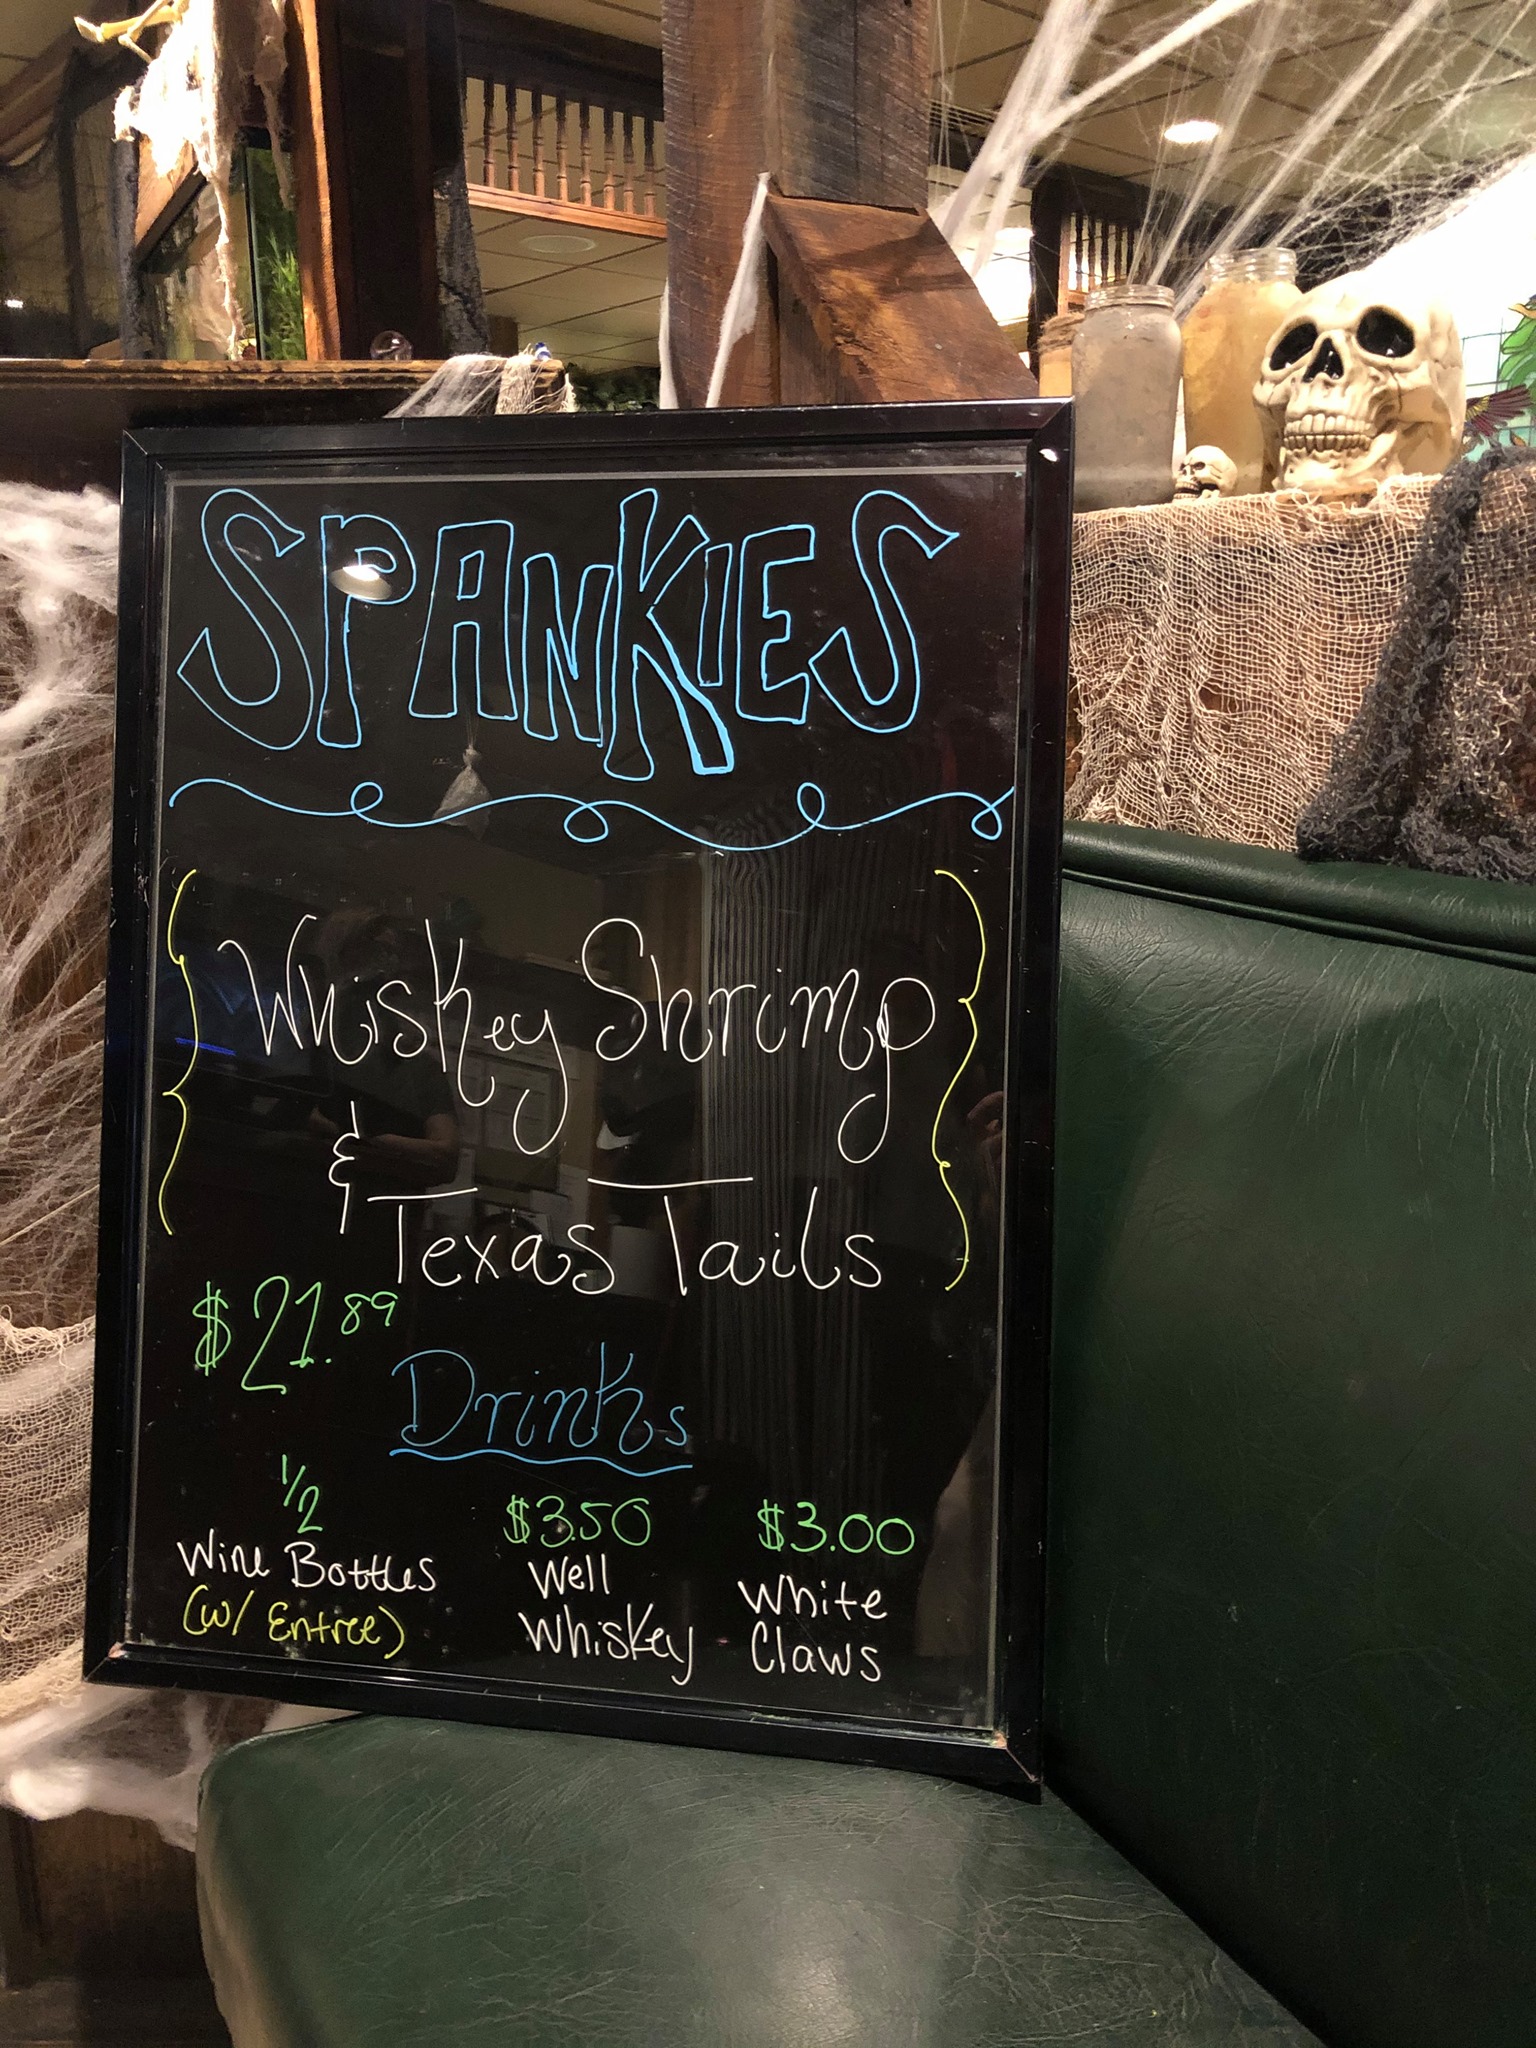 SPANKIES
Whiskey Shrimp
&
Texas Tails
$21.89
Drinks
1/2
Wine Bottles
(w/ Entree)
$3.50
Well
Whiskey
$3.00
White
Claws